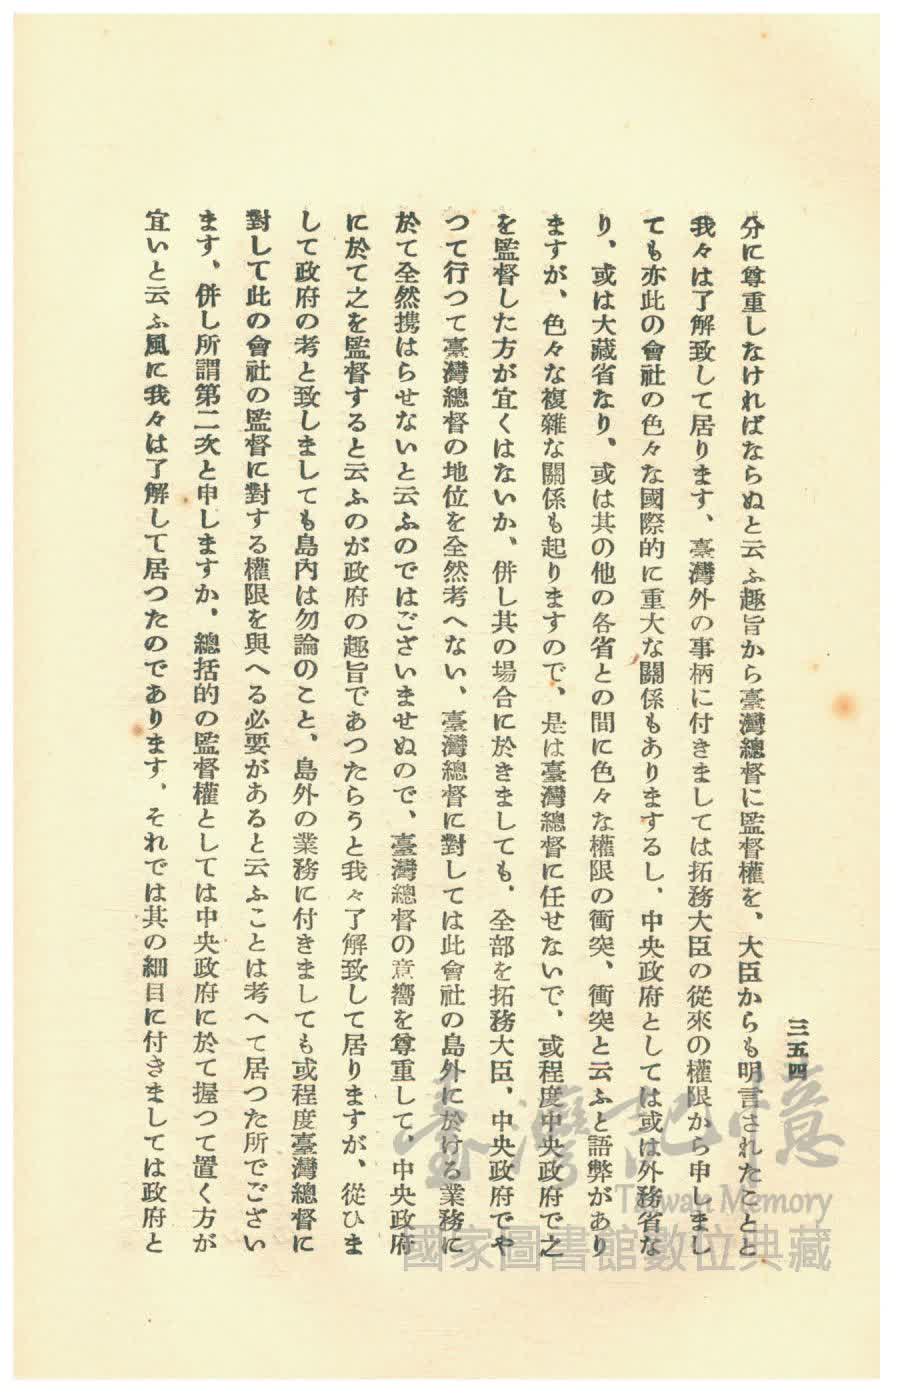 三五四
分に尊重しなければならぬと云ふ趣旨から臺灣總督に監督權を、大臣からも明言されたことと
我々は了解致して居ります、臺灣外の事柄に付きましては拓務大臣の從來の權限から申しまし
ても亦此の會社の色々な國際的に重大な關係もありまするし、中央政府としては或は外務省な
り、或は大藏省なり、或は其の他の各省との間に色々な權限の衝突、衝突と云ふと語弊があり
ますが、色々な複雜な關係も起りますので、是は臺灣總督に任せないで、或程度中央政府で之
を監督した方が宜くはないか、併し其の場合に於きましても、全部を拓務大臣、中央政府でや
つて行つて臺灣總督の地位を全然考へない、臺灣總督に對しては此會社の島外に於ける業務に
於て全然携はらせないと云ふのではございませぬので、臺灣總督の意嚮を尊重して、中央政府
に於て之を監督すると云ふのが政府の趣旨であつたらうと我々了解致して居りますが、從ひま
して政府の考と致しましても島內は勿論のこと、島外の業務に付きましても或程度臺灣總督に
對して此の會社の監督に對する權限を與へる必要があると云ふことは考へて居つた所でござい
ます、併し所謂第二次と申しますか、總括的の監督權としては中央政府に於て握つて置く方が
宜いと云ふ風に我々は了解して居つたのであります、それでは其の細目に付きましては政府と
臺灣記憶
Taiwan Memory
國家圖書館數位典藏